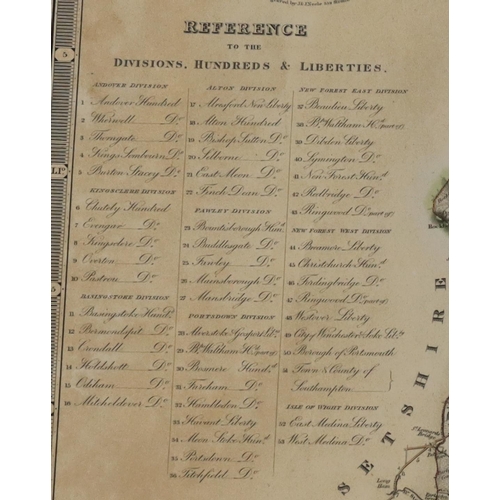 REFERENCE
TO THE
DIVISIONS, HUNDREDS & LIBERTIES.
ANDOVER DIVISION
1 Andover Hundred
2 Wherwell Do.
3 Thorngate Do.
4 Kings Sombourn Do.
5 Barton Stacey Do.
KINGSCLERE DIVISION
6 Chutely Hundred
7 Evengar Do.
8 Kingsclere Do.
9 Overton Do.
10 Pastrow Do.
BASINGSTOKE DIVISION
11 Basingstoke Hund.
12 Bermondspit Do.
13 Crondall Do.
14 Holdshott Do.
15 Odiham Do.
16 Mitcheldever Do.
ALTON DIVISION
17 Alresford New Liberty
18 Alton Hundred
19 Bishop Sutton Do.
20 Selborne Do.
21 East Meon Do.
22 Finch Dean Do.
FAWLEY DIVISION
23 Bountisborough Hund.
24 Buddlesgate Do.
25 Fawley Do.
26 Mainsborough Do.
27 Mansbridge Do.
PORTSDOWN DIVISION
28 Alverstoke & Gosport Lib.
29 Bps. Waltham Hd. (part of)
30 Bosmere Hund.
31 Fareham Do.
32 Hambledon Do.
33 Havant Liberty
34 Meon Stoke Hund.
35 Portsdown Do.
36 Titchfield Do.
NEW FOREST EAST DIVISION
37 Beaulieu Liberty
38 Bps. Waltham Hd. (part of)
39 Dibden Liberty
40 Lymington Do.
41 New Forest Hund.
42 Redbridge Do.
43 Ringwood Do. (part of)
NEW FOREST WEST DIVISION
44 Breamore Liberty
45 Christchurch Hund.
46 Fordingbridge Do.
47 Ringwood Do. (part of)
48 Westover Liberty
49 City of Winchester & Soke Lib.
50 Borough of Portsmouth
51 Town & County of
Southampton
ISLE OF WIGHT DIVISION
52 East Medina Liberty
53 West Medina Do.
SETSHIRE